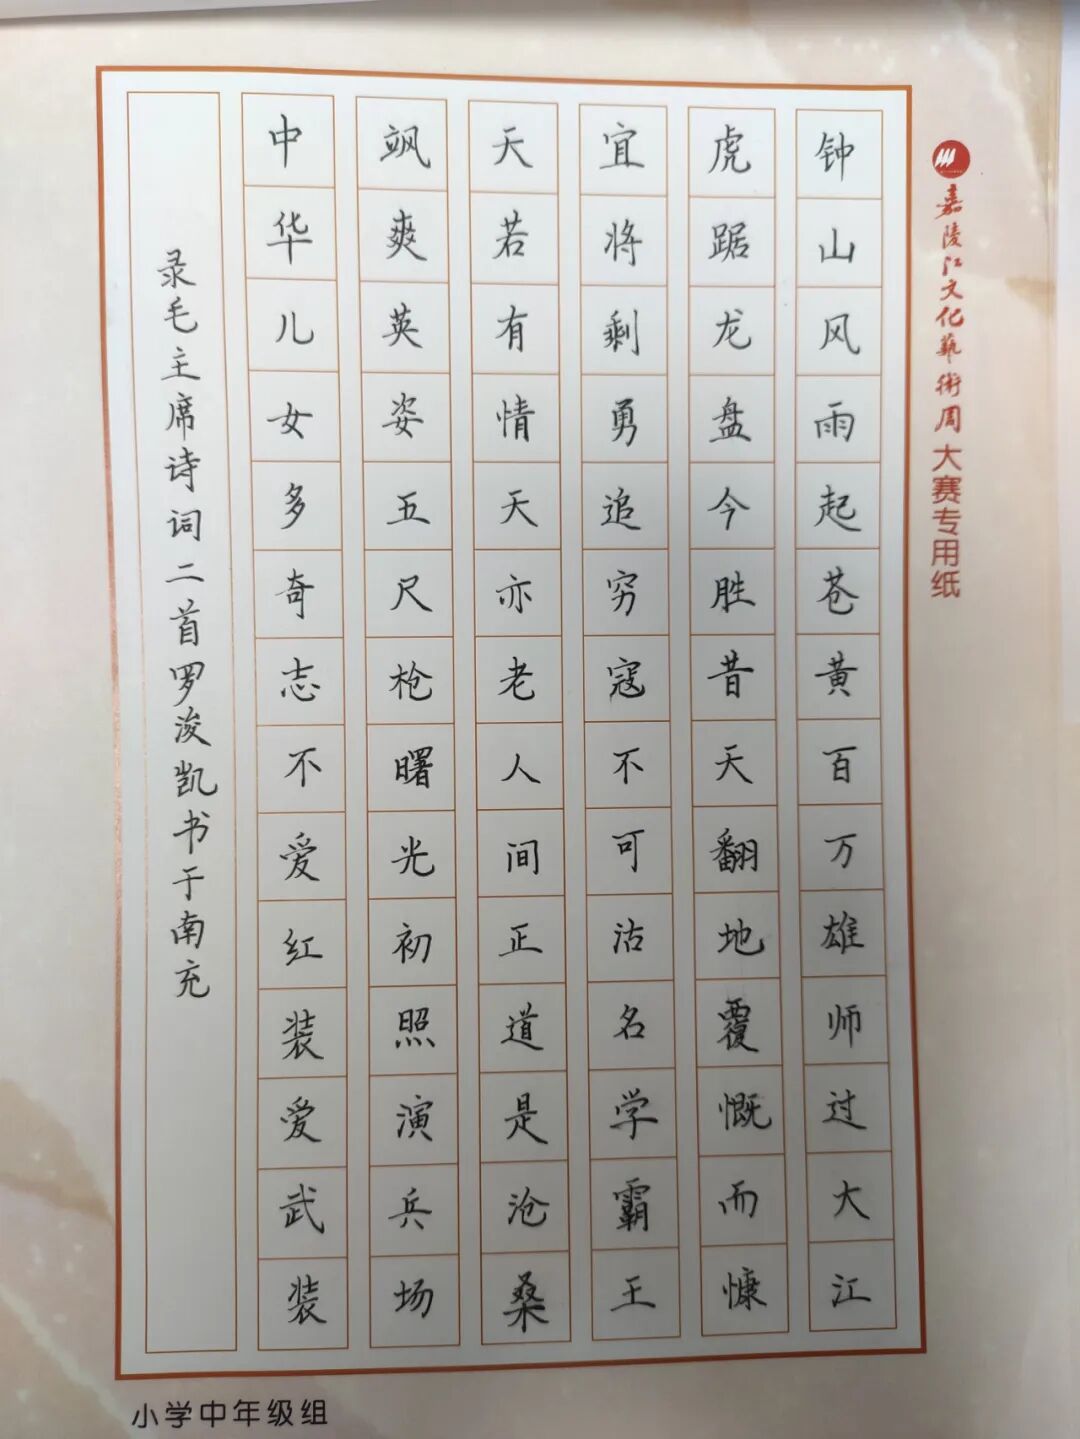 嘉陵江文化藝術周大赛专用纸
钟山风雨起苍黄百万雄师过大江
虎踞龙盘今胜昔天翻地覆慨而慷
宜将剩勇追穷寇不可沽名学霸王
天若有情天亦老人间正道是沧桑
飒爽英姿五尺枪曙光初照演兵场
中华儿女多奇志不爱红装爱武装
录毛主席诗词二首罗浚凯书于南充
小学中年级组